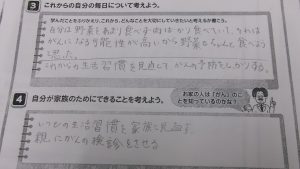 3 これからの自分の毎日について考えよう。
学んだことをふりかえり、これから、どんなことを大切にしていきたいと考えるか書こう。
自分は野菜をあまり食べず肉ばかり食べていて、それは
がんになる可能性が高いから野菜もちゃんと食べよう
と思った。
これからの生活習慣を見直して がんの予防をしたりする。
4 自分が家族のためにできることを考えよう。
お家の人は「がん」のこ
とを知っているのかな?
いつもの生活習慣を家族と見直す。
親にがんの検診をさせる